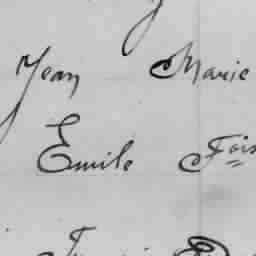 Jean Marie
Emile Fois